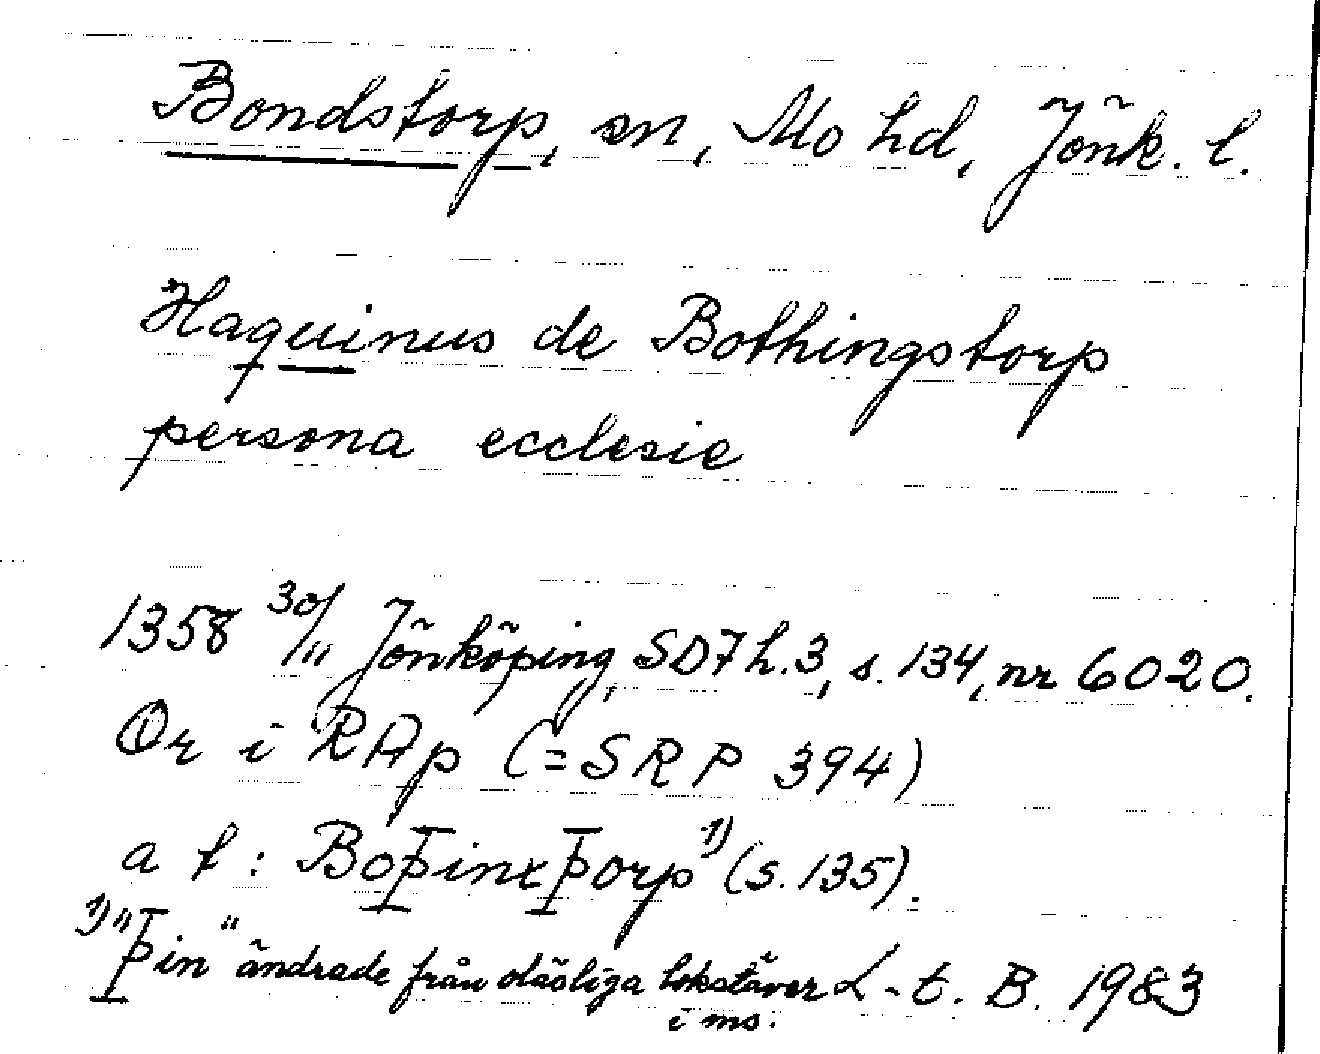 Bondstorp, sn, Mo hd, Jönk. l.
Haquinus de Bothingstorp
persona ecclesie
1358 30/11 Jönköping, SD7 h.3, s. 134, nr 6020.
Or i RAp (=SRP 394)
a t: BoÞinxÞorp 1) (s. 135).
1) "Þin" ändrade från oläsliga bokstäver L-t. B. 1983
i ms.